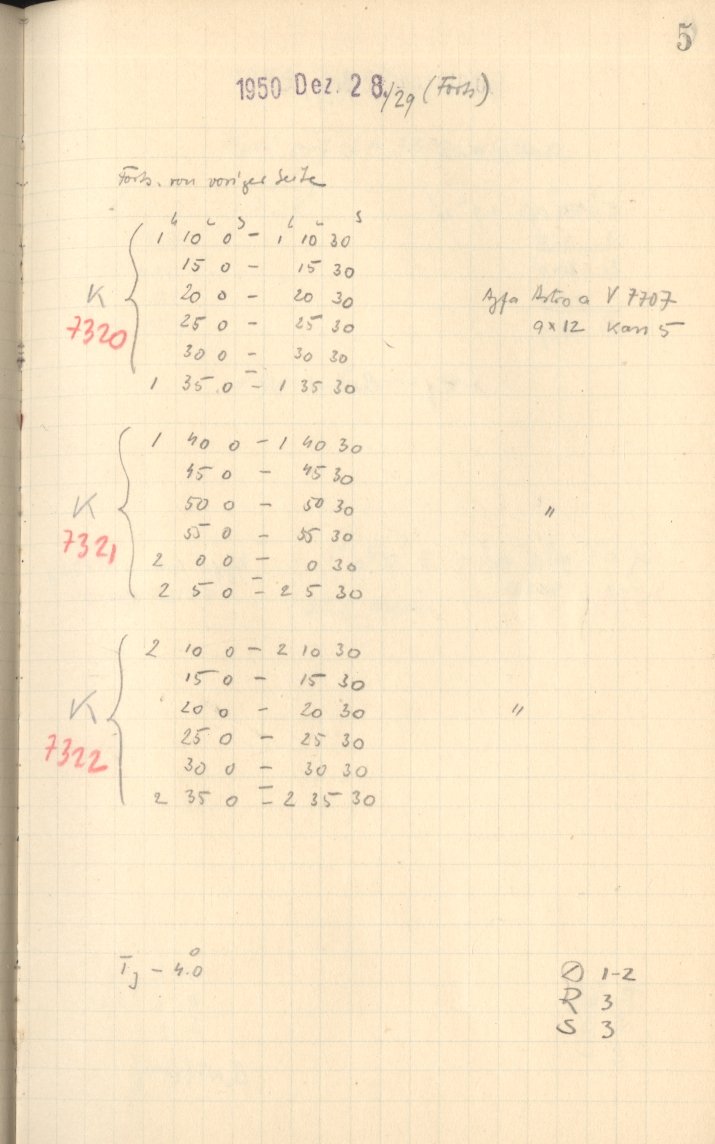 5
1950 Dez. 28./29 (Forts)
Forts. von voriger Seite
h m s h m s
1 10 0 - 1 10 30
15 0 - 15 30
K 20 0 - 20 30 Agfa Astro a V 7707
7320 25 0 - 25 30 9x12 Kass 5
30 0 - 30 30
1 35 0 - 1 35 30
1 40 0 - 1 40 30
45 0 - 45 30
K 50 0 - 50 30 "
7321 55 0 - 55 30
2 0 0 - 0 30
2 5 0 - 2 5 30
2 10 0 - 2 10 30
15 0 - 15 30
K 20 0 - 20 30 "
7322 25 0 - 25 30
30 0 - 30 30
2 35 0 - 2 35 30
TJ - 4.°0
1-2
R 3
S 3